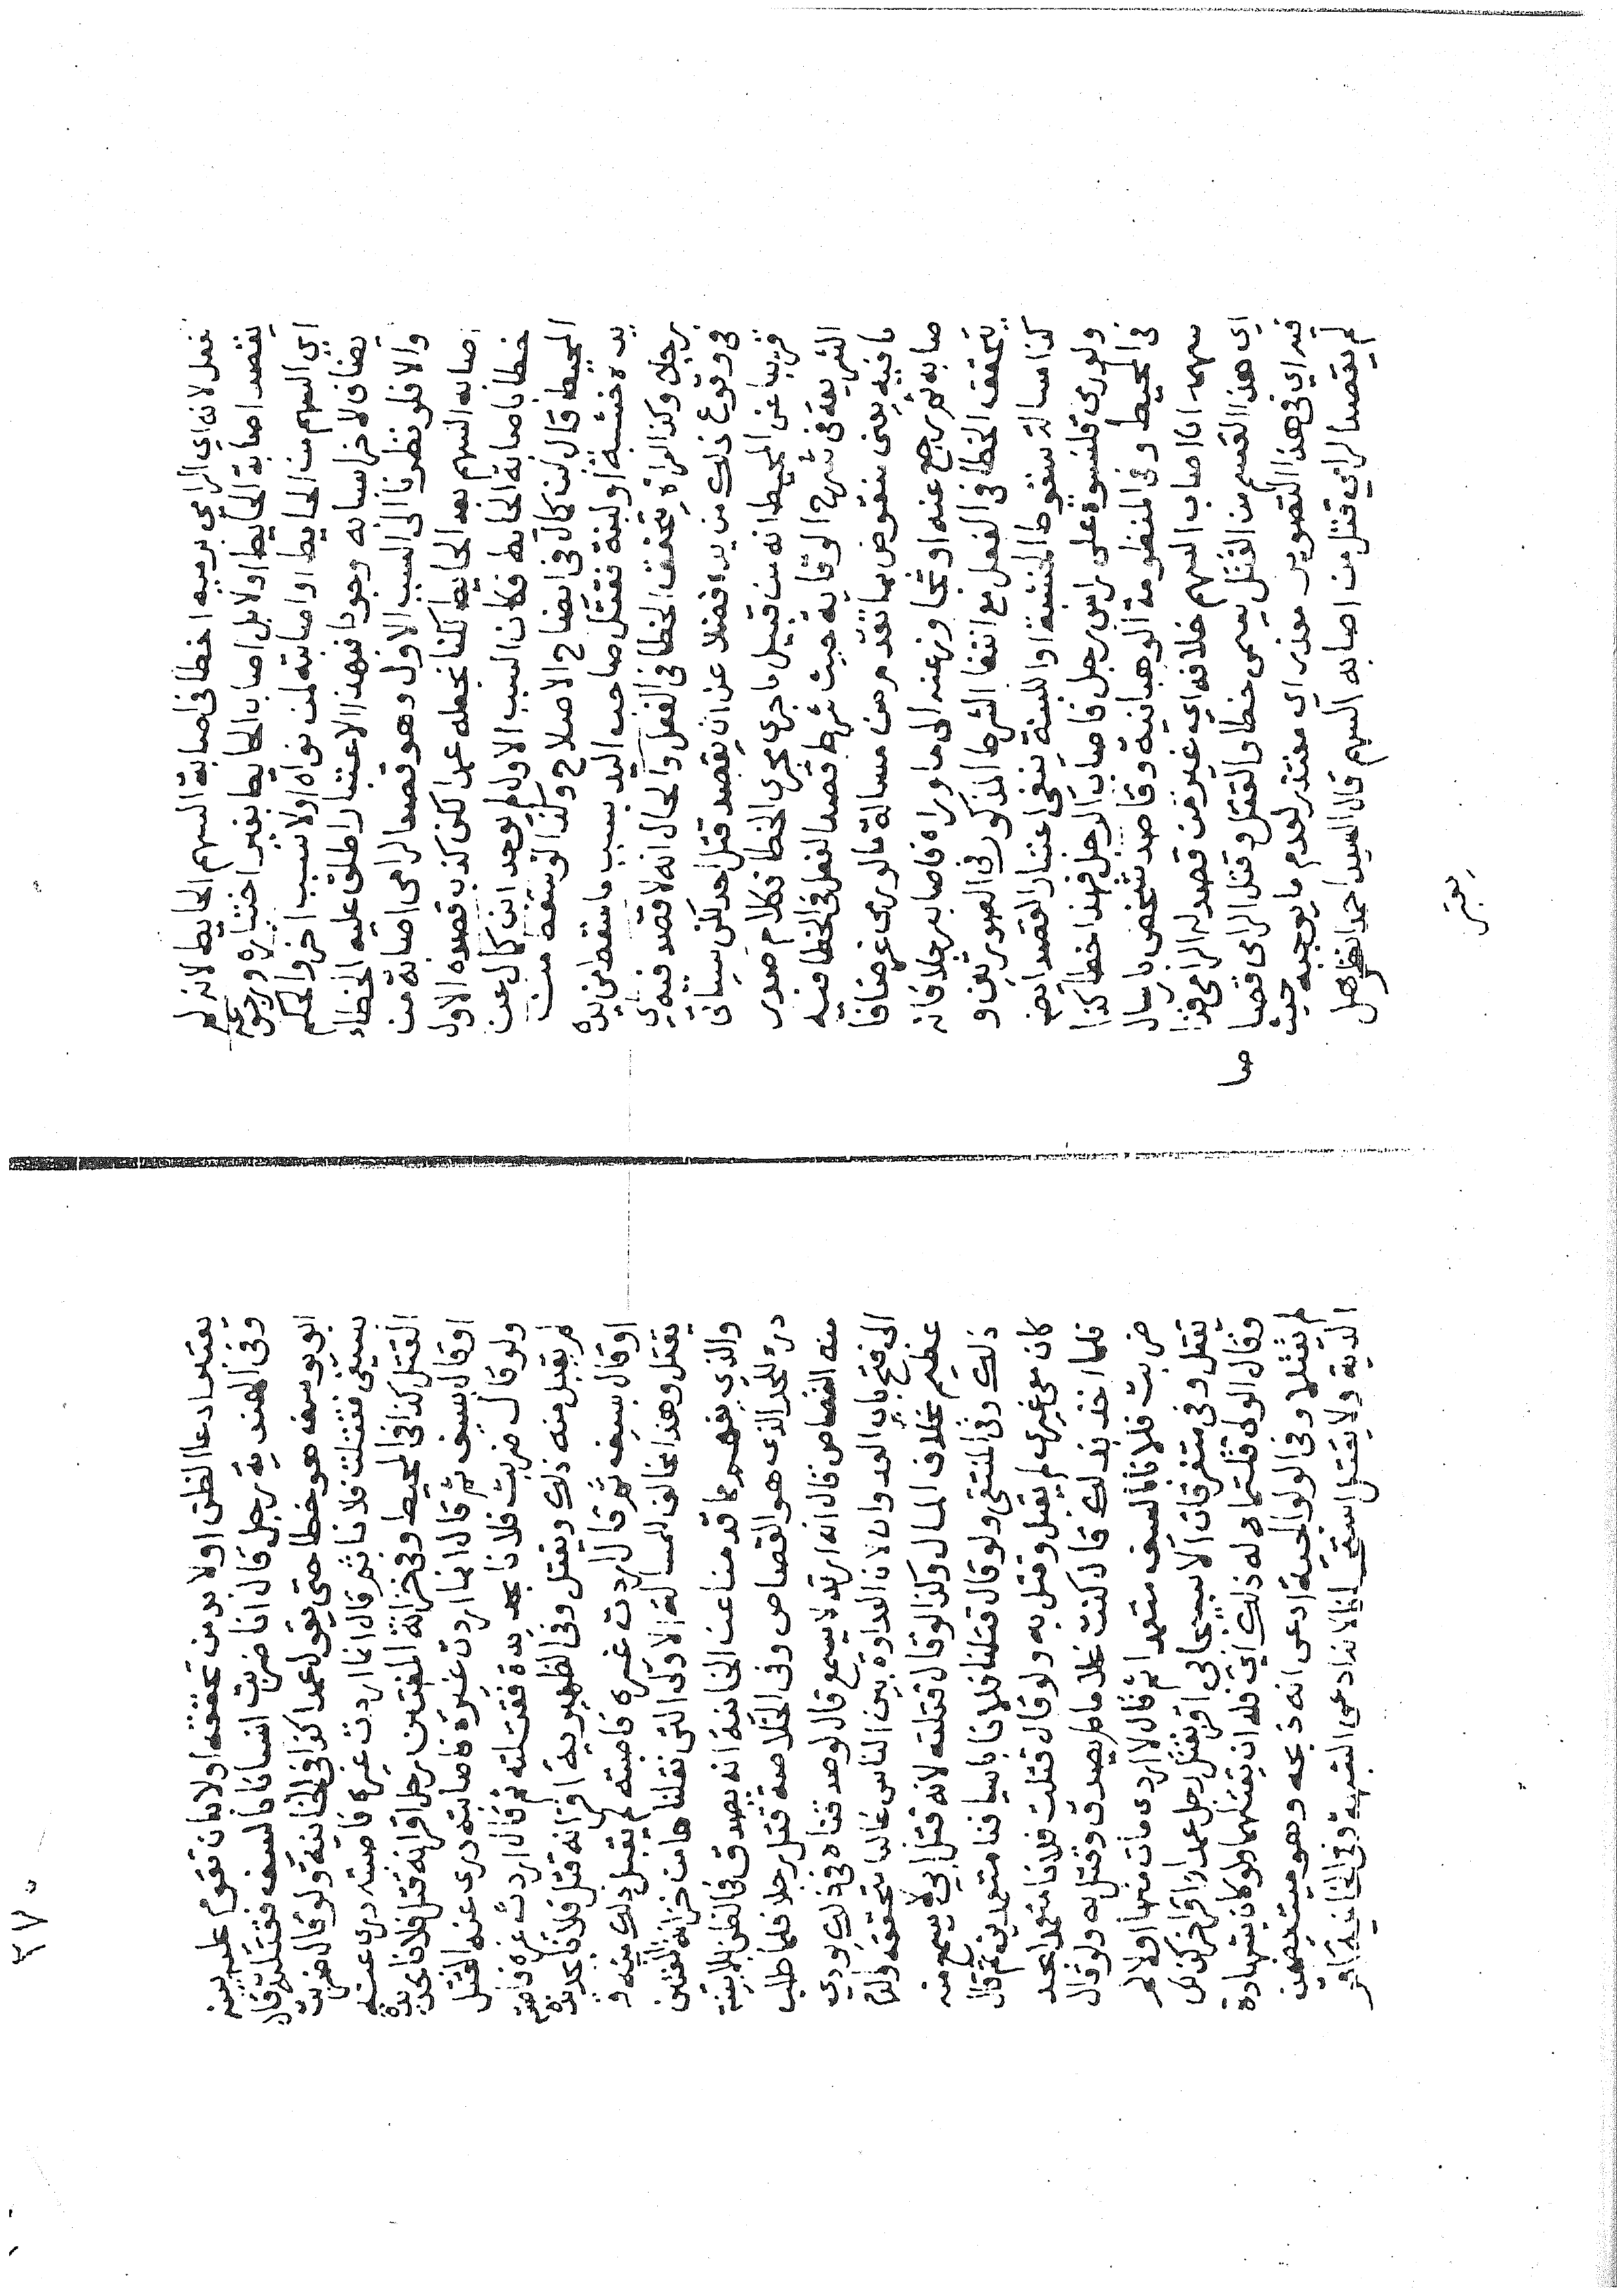 يفعل لانه اي الرامي برميه اخطا في اصابة السهم الحايط لانه لم
يقصد اصابة الحايط اولا بل اصاب الحايط بغير اختياره ورجوعه
اي السهم من الحايط او اصابته لمن نواه اولا سبب اخر والحكم
يضاف لاخر اسبابه وجودا فبهذا الاعتبار اطلق عليه الخطاء
والا فلو نظرنا الى السبب الاول وهو قصد الرامي اصابة من
اصابه السهم بعد الحايط لكنا نجعله عمدا لكن كذب قصده الاول
خطا باصابة الحايط فكان السبب الاول لم يوجد ابن كمال عن
المحيط قال ابن كمال في ايضاح الاصلاح وكذا لو سقط من
يده خشبة او لبنة فقتل صاحب اليد بسبب ما سقط من يده
رجلا وكذا المراة يتحقق الخطا في الفعل والحال انه لا قصد فيه اي
في وقوع ذلك من يده فضلا عن ان يقصد قتل احد لكن سياتي
قريبا عن المحيط انه من قبيل ما جرى مجرى الخطا فكلام صدر
الشريعة في شرح الوقاية حيث شرط قصد الفعل في الخطا فيه
ما فيه يعني منقوض بما تقدم من مسالة ما لو رمى غرضا فا
صابه ثم رجع عنه او تجاوز عنه الى ما وراه فاصاب رجلا فانه
يتحقق الخطا في الفعل مع انتفا الشرط المذكور في الصورتين و
كذا مسالة سقوط الخشبة او اللبنة ينفي اعتبار القصد ايضا
ولو رمى قلنسوة على راس رجل فاصاب الرجل فهذا خطا كذا
في المحيط وفي المنظومة الوهبانية وقاصد شخص بارسال
سهمه اذا اصاب السهم خلافه اي غير من قصد له الرامي فذا
اي هذا القسم من القتل يسمى خطا والقتل وقتل الرامي قصا صا
فيه اي في هذا التصوير معذر اي متعذر لعدم ما يوجبه حيث
لم يقصد الرامي قتل من اصابه السهم قال السيد احمد انظر هل
يعتبر
٢٧٠
يعتبر ادعا الخطا اولا بد من تحققه اولا بان تقوم عليه بينة
وفي الهندية رجل قال انا ضربت انسانا بالسيف فقتلته قال
ابو يوسف هو خطا حتى يقول عمدا كذا في الخانية ولو قال ضربت
بسيفي فقتلت فلانا ثم قال انما اردت غيره فاصبته دري عنه
القتل كذا في المحيط وفي خزانة المفتين رجل اقر انه قتل فلانا بحديدة
او قال بسيف ثم قال انما اردت غيره فاصابته دري عنه القتل
ولو قال ضربت فلانا بحديدة فقتلته ثم قال اردت غيره فاصبته
لم يقبل منه ذلك ويقتل وفي الظهيرية اقر انه قتل فلانا بحديدة
او قال بسيف ثم قال اردت غيره فاصبته لم يقبل ذلك منه و
يقتل وهذا يخالف المسالة الاولى التي نقلناها من خزانة المفتين
والذي يفهم مما قدمنا عن الخانية انه يصدق في الخطا بلا بينة
درء للحد الذي هو القصاص وفي الخلاصة قتل رجلا فلما طلب
منه القصاص قال انه ارتد لا يسمع قال لو صدقناه في ذلك يودي
الى فتح باب العدوان لان العداوة بين الناس غالبا متحققة والدم
عظيم بخلاف المال وكذا لو قال قتلته لانه قتل ابي لا يسمع منه
ذلك وفي المنتقى ولو قال قتلنا فلانا باسيافنا متعمدين ثم قال
كان معي غيري لم يقبل وقتل به ولو قال قتلت فلانا متعمدا بحد
فلما اخذ بذلك قال كنت غلاما لم يصدق وقتل به ولو قال
ضربت فلانا بالسيف متعمدا ثم قال لا ادري مات منها اولا لم
يقتل وفي متفرقات الاسبيجابي اقر بقتل رجل عمدا واقر اخر كذلك
وقال الولي قتلتماه له ذلك اي فله ان يقتلهما ولو كان بشهادة
لم يقتلا وفي الولوالجية ادعى انه ذبحه وهو ميت يضمن
الدية ولا يقتل استحسانا لانه ادعى الشبهة وفي الخانية اقر